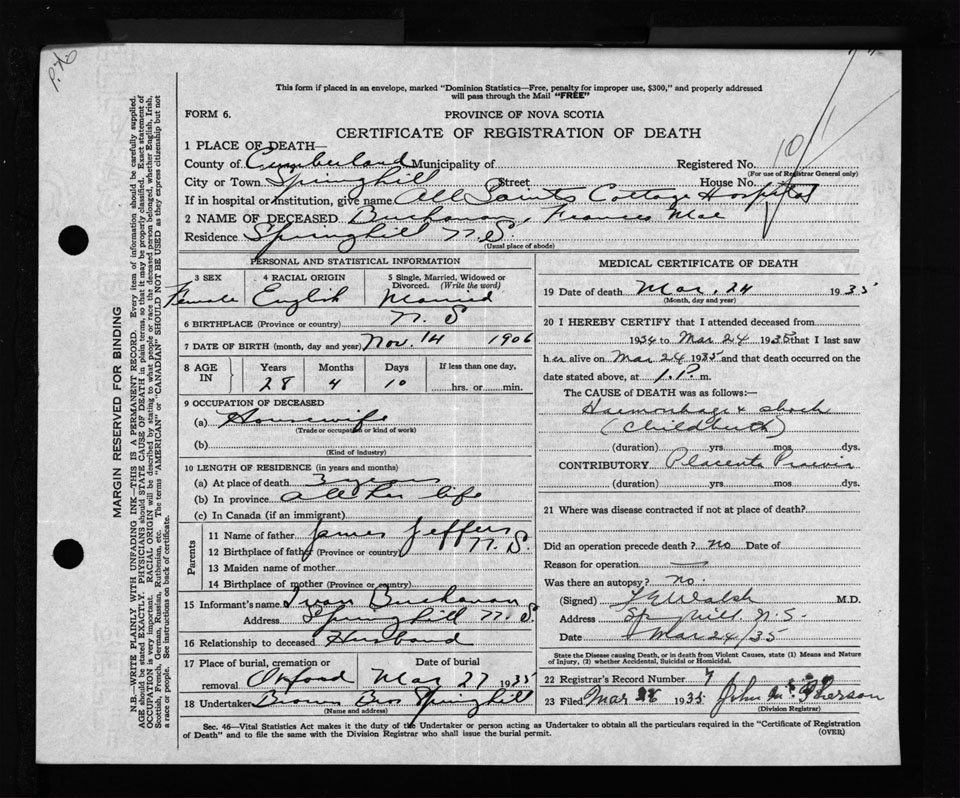 P.no
This form if placed in an envelope, marked "Dominion Statistics—Free, penalty for improper use, $300," and properly addressed
will pass through the Mail "FREE"
FORM 6.
PROVINCE OF NOVA SCOTIA
CERTIFICATE OF REGISTRATION OF DEATH
1 PLACE OF DEATH—
County of Cumberland Municipality of
Registered No. 101
(For use of Registrar General only)
City or Town Springhill Street House No.
If in hospital or institution, give name All Saints Cottage Hospital
2 NAME OF DECEASED Buchanan, Frances Mae
Residence Springhill N.S.
(Usual place of abode)
PERSONAL AND STATISTICAL INFORMATION
3 SEX
Female
4 RACIAL ORIGIN
English
5 Single, Married, Widowed or
Divorced. (Write the word)
Married
6 BIRTHPLACE (Province or country) N.S
7 DATE OF BIRTH (month, day and year) Nov. 14 1906
8 AGE IN
Years Months Days If less than one day,
28 4 10 hrs. or min.
9 OCCUPATION OF DECEASED
(a) Housewife
(Trade or occupation or kind of work)
(b)
(Kind of industry)
10 LENGTH OF RESIDENCE (in years and months)
(a) At place of death 3 years
(b) In province all her life
(c) In Canada (if an immigrant)
Parents
11 Name of father James Jeffers
12 Birthplace of father (Province or country) N.S.
13 Maiden name of mother
14 Birthplace of mother (Province or country)
15 Informant's name Ivan Buchanan
Address Springhill N.S.
16 Relationship to deceased Husband
17 Place of burial, cremation or removal Oxford
Date of burial Mar 27 1935
18 Undertaker Brown Bros Springhill
(Name and address)
MEDICAL CERTIFICATE OF DEATH
19 Date of death Mar. 24 1935
(Month, day and year)
20 I HEREBY CERTIFY that I attended deceased from
1934 to Mar 24 1935 that I last saw
her alive on Mar 24 1935 and that death occurred on the
date stated above, at 1.P. m.
The CAUSE OF DEATH was as follows:—
Haemorrhage & shock
(Childbirth)
(duration) yrs. mos. dys.
CONTRIBUTORY Placenta Praevia
(duration) yrs. mos. dys.
21 Where was disease contracted if not at place of death?
Did an operation precede death? no Date of
Reason for operation —
Was there an autopsy? no.
(Signed) F E Walsh M.D.
Address Sp. hill. N.S.
Date Mar 24/35
State the Disease causing Death, or in death from Violent Causes, state (1) Means and Nature
of Injury, (2) whether Accidental, Suicidal or Homicidal.
22 Registrar's Record Number 7
23 Filed Mar 26 1935 John McPherson
(Division Registrar)
Sec. 46—Vital Statistics Act makes it the duty of the Undertaker or person acting as Undertaker to obtain all the particulars required in the "Certificate of Registration
of Death" and to file the same with the Division Registrar who shall issue the burial permit.
(OVER)
MARGIN RESERVED FOR BINDING
N.B.—WRITE PLAINLY WITH UNFADING INK—THIS IS A PERMANENT RECORD. Every item of information should be carefully supplied.
AGE should be stated EXACTLY. PHYSICIANS should STATE CAUSE OF DEATH in plain terms, so that it may be properly classified. Exact statement of
OCCUPATION is very important. RACIAL ORIGIN will be described by stating to what people or race the deceased person belonged, whether English, Irish,
Scottish, French, German, Russian, Ruthenian, etc. The terms "AMERICAN" or "CANADIAN" SHOULD NOT BE USED as they express citizenship but not
a race or people. See instructions on back of certificate.